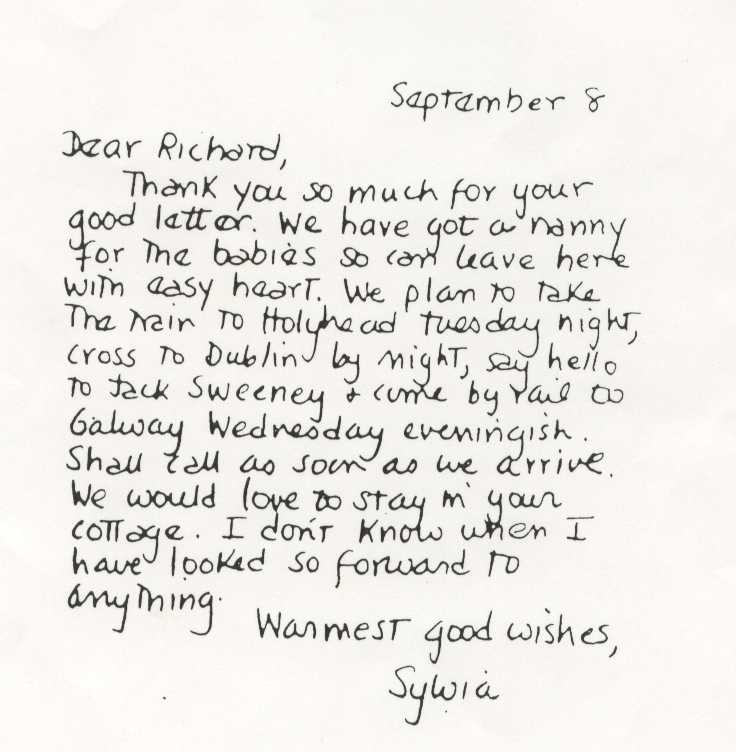 September 8
Dear Richard,
Thank you so much for your
good letter. We have got a nanny
for the babies so can leave here
with easy heart. We plan to take
the train to Holyhead Tuesday night,
cross to Dublin by night, say hello
to Jack Sweeney & come by rail to
Galway Wednesday eveningish.
Shall call as soon as we arrive.
We would love to stay in your
cottage. I don't know when I
have looked so forward to
anything.
Warmest good wishes,
Sylvia